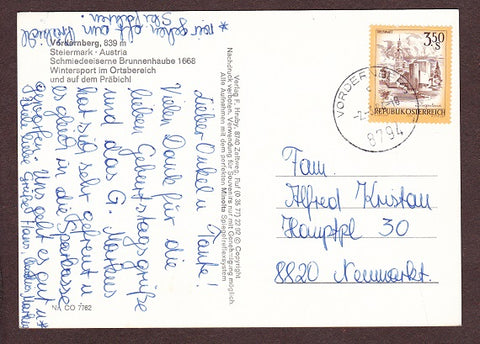 Vordernberg, 839 m
Steiermark - Austria
Schmiedeeiserne Brunnenhaube 1668
Wintersport im Ortsbereich
und auf dem Präbichl
Lieber Onkel u. Tante!
Vielen Dank für die
lieben Geburtstagsgrüße
und das G. Markus
hat sich sehr gefreut u.
es glang in die Sparkasse
geworfen. Uns geht es gut u*
Viele liebe Grüße
* wir gehen oft am Präbichl
Skifahren.
Verlag F. Hruby, 8740 Zeltweg, Ruf (0 35 77) 22 12 © Copyright
Nachdruck verboten. Verwendung für Souvenirs nur mit Genehmigung möglich.
Alle Aufnahmen mit dem perfekten Minolta Spiegelreflexsystem
NA CO 7762
3.50
S
REPUBLIK ÖSTERREICH
VORDERNB
8794
Fam.
Alfred Kristan
Hauptpl 30
8820 Neumarkt.